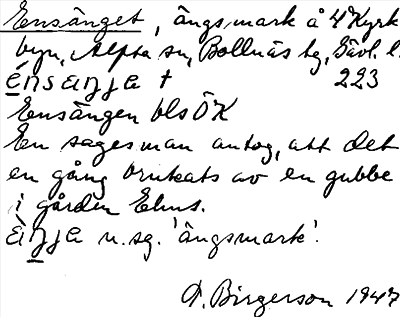 Ensänget, ängsmark å 4 Kyrk
byn, Alfta sn, Bollnäs tg, Gävl. l.
énsaŋja t 223
Ensängen bls ÖK
En sagesman antog, att det
en gång brukats av en gubbe
i gården Elms.
àŋja n. sg. 'ängsmark'.
A. Birgerson 1947